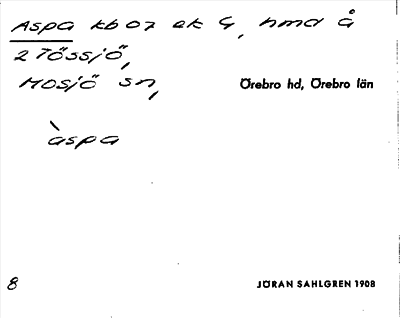 Aspa kb 07 ek 4, hmd å
2 Tössjö,
Mosjö sn, Örebro hd, Örebro län
àspa
8 JÖRAN SAHLGREN 1908